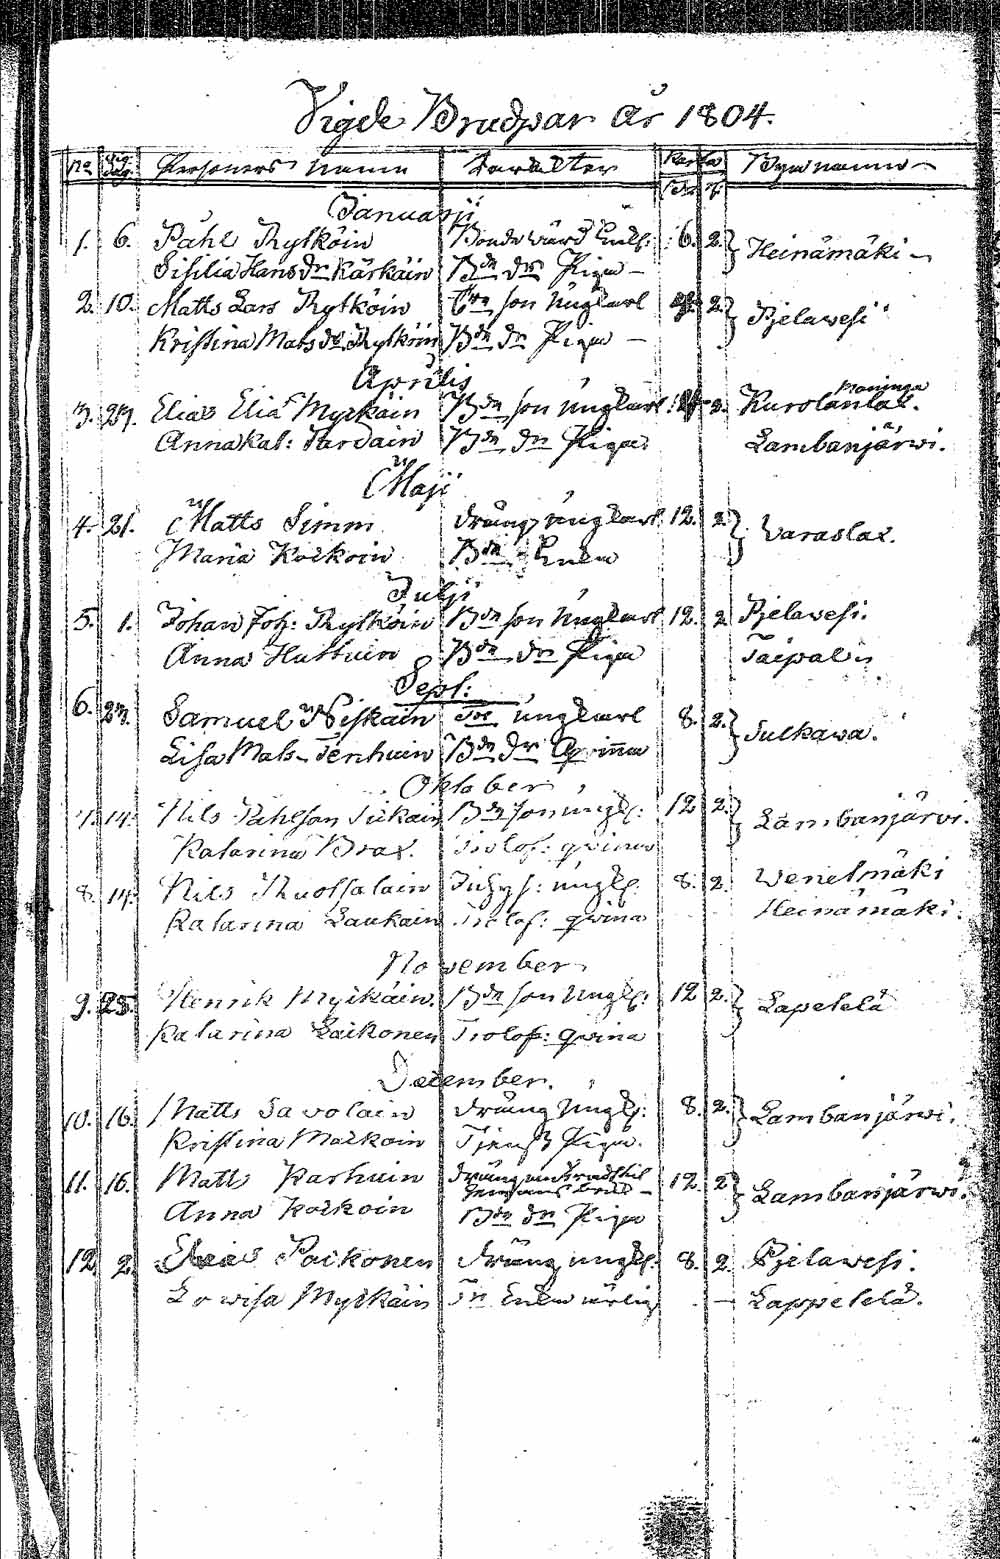 Vigde Brudpar År 1804.
No Vig. dag. Personers Namn Karakter Bynamn
Januarji
1. 6. Påhl Rytköin Bonde 6. 2. Heinämäki
Sisilia Hans dr Kärkäin Bde dr Piga
2. 10. Matts Lars Rytköin son Ungkarl 2. Pjelawesi
Kristina Mats dr Rytköin Bde dr Piga
Aprilis
3. 23. Elias Elia Mykkäin Bde son Ungkarl 2. Kurolanlax.
Maninga
Anna Kat: Tardain Bde dr Piga Lambanjärwi.
Maji
4. 21. Matts Simm dräng ungkarl 12. 2 Varaslax.
Maria Kokkoin Bde Enka
Julji
5. 1. Johan Joh: Rytköin Bde son Ungkarl 12. 2 Pjelawesi.
Anna Huttuin Bde dr Piga Taipale
Sept:
6. 23. Samuel Niskain ungkarl 8. 2. Sulkawa.
Lisa Mats Tenhuin Bde dr Qvinna
Oktober
7. 14. Nils Påhlson Tiikain Bde son ungk: 12 2. Lambanjärvi.
Katarina Brax. Trolof: qvina
8. 14. Nils Ruottalain ungk: 8. 2. Wenetmäki
Katarina Laukain Trolof: qvina Heinämäki.
November
9. 25. Henrik Mykäin Bde son Ungk: 12 2. Lapetelä
Katarina Laikonen Trolof: qvina
December.
10. 16. Matts Savolain dräng Ungk: 8. 2. Lambanjärwi.
Kristina Markoin Tjenst Piga.
11. 16. Matts Karhuin dräng 12. 2 Lambanjärwi.
Anna Kokkoin Bde dr Piga
12. 2. Elias Paikonen dräng ungk: 8. 2. Pjelawesi.
Lowisa Mykkäin Enka ärlig Lappetelä.